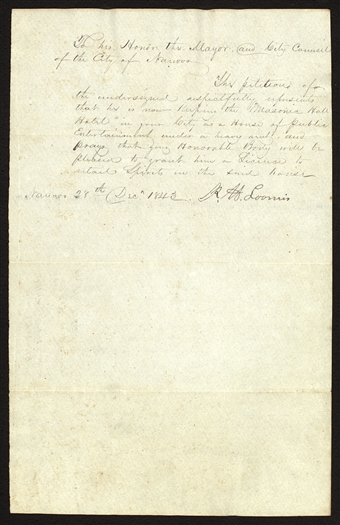 To his Honor the Mayor and City Council
of the City of Nauvoo
The petition of
the undersigned respectfully represents
that he is now keeping the Masonic Hall
Hotel in your City as a House of Public
Entertainment under a heavy and
prays that your Honorable Body will be
pleased to grant him a License to
retail Spirits in the said house
Nauvoo 28th Decr 1843 R. A. Loomis